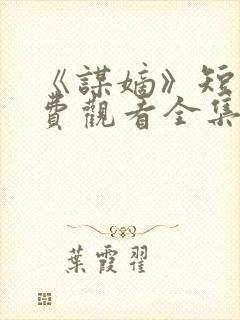 《謀嫡》短
費觀看全集
葉霞翟